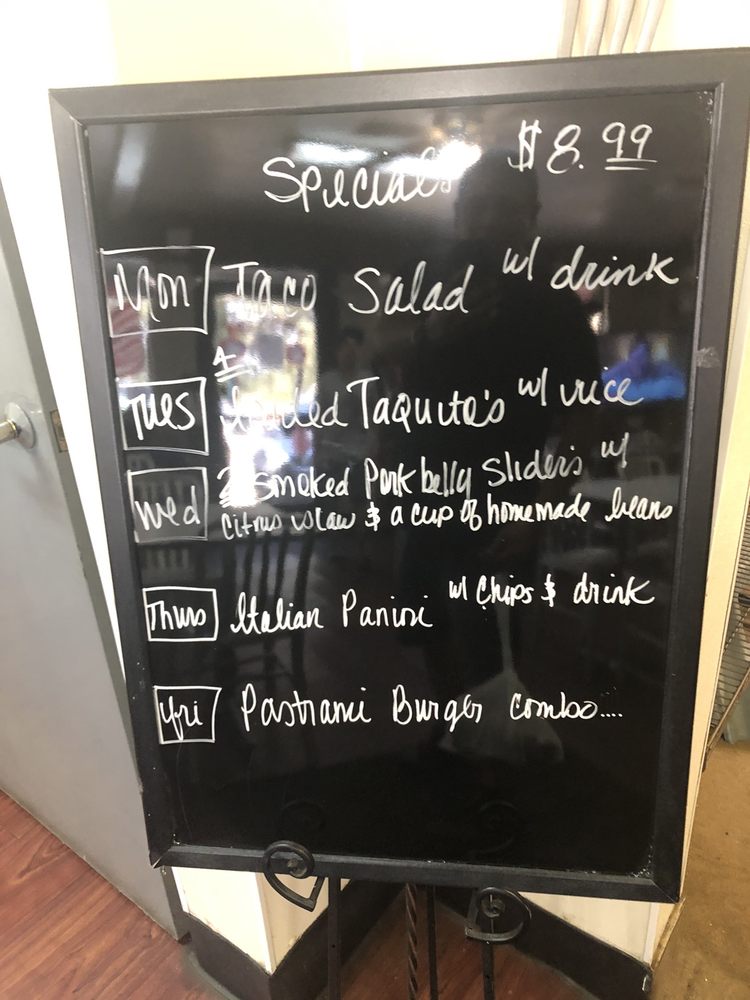 Specials $8.99
Mon Taco Salad w/ drink
4
Tues loaded Taquito's w/ rice
Wed 2 smoked Pork belly Sliders w/
citrus slaw & a cup of homemade beans
Thurs Italian Panini w/ Chips & drink
Fri Pastrami Burger combo....